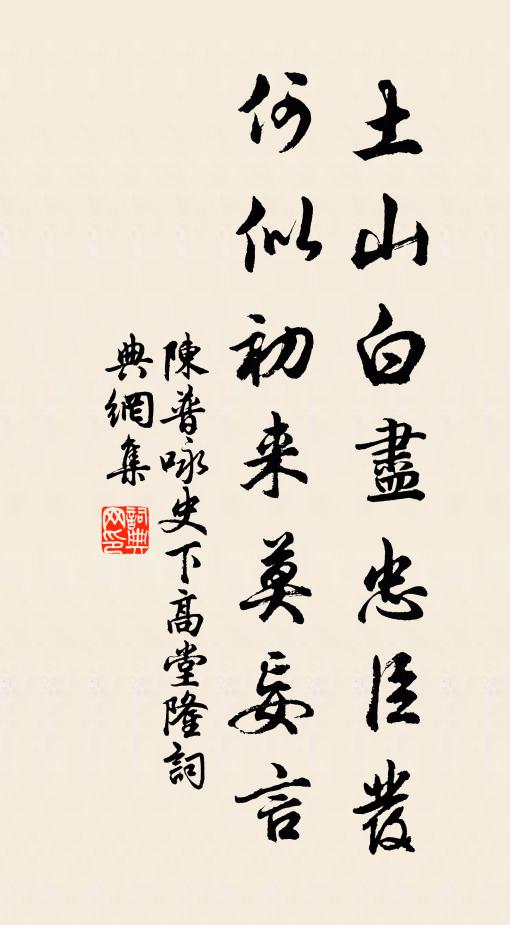 土山白盡忠臣髮
何似初来莫妄言
陳普咏史下高堂隆詞
典網集
詞典
网印